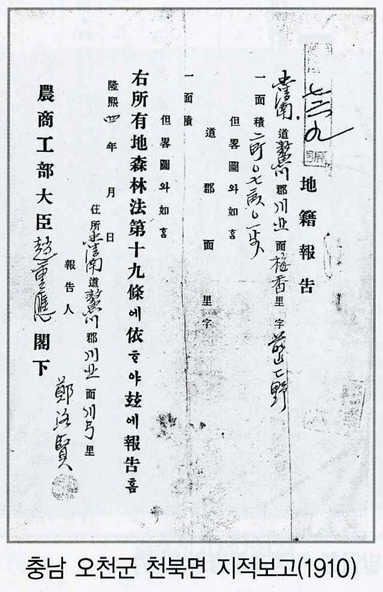 七六九
地籍報告
忠淸南道鰲川郡川北面梅香里字
一面積二町〇七畝〇一步
但畧圖와如홈
道郡面里字
一面積
但畧圖와如홈
右所有地森林法第十九條에依ᄒᆞ야玆에報告홈
隆熙四年 月 日
住所忠淸南道鰲川郡川北面川弓里
報告人 鄭洛賢
農商工部大臣趙重應閣下
충남 오천군 천북면 지적보고(1910)